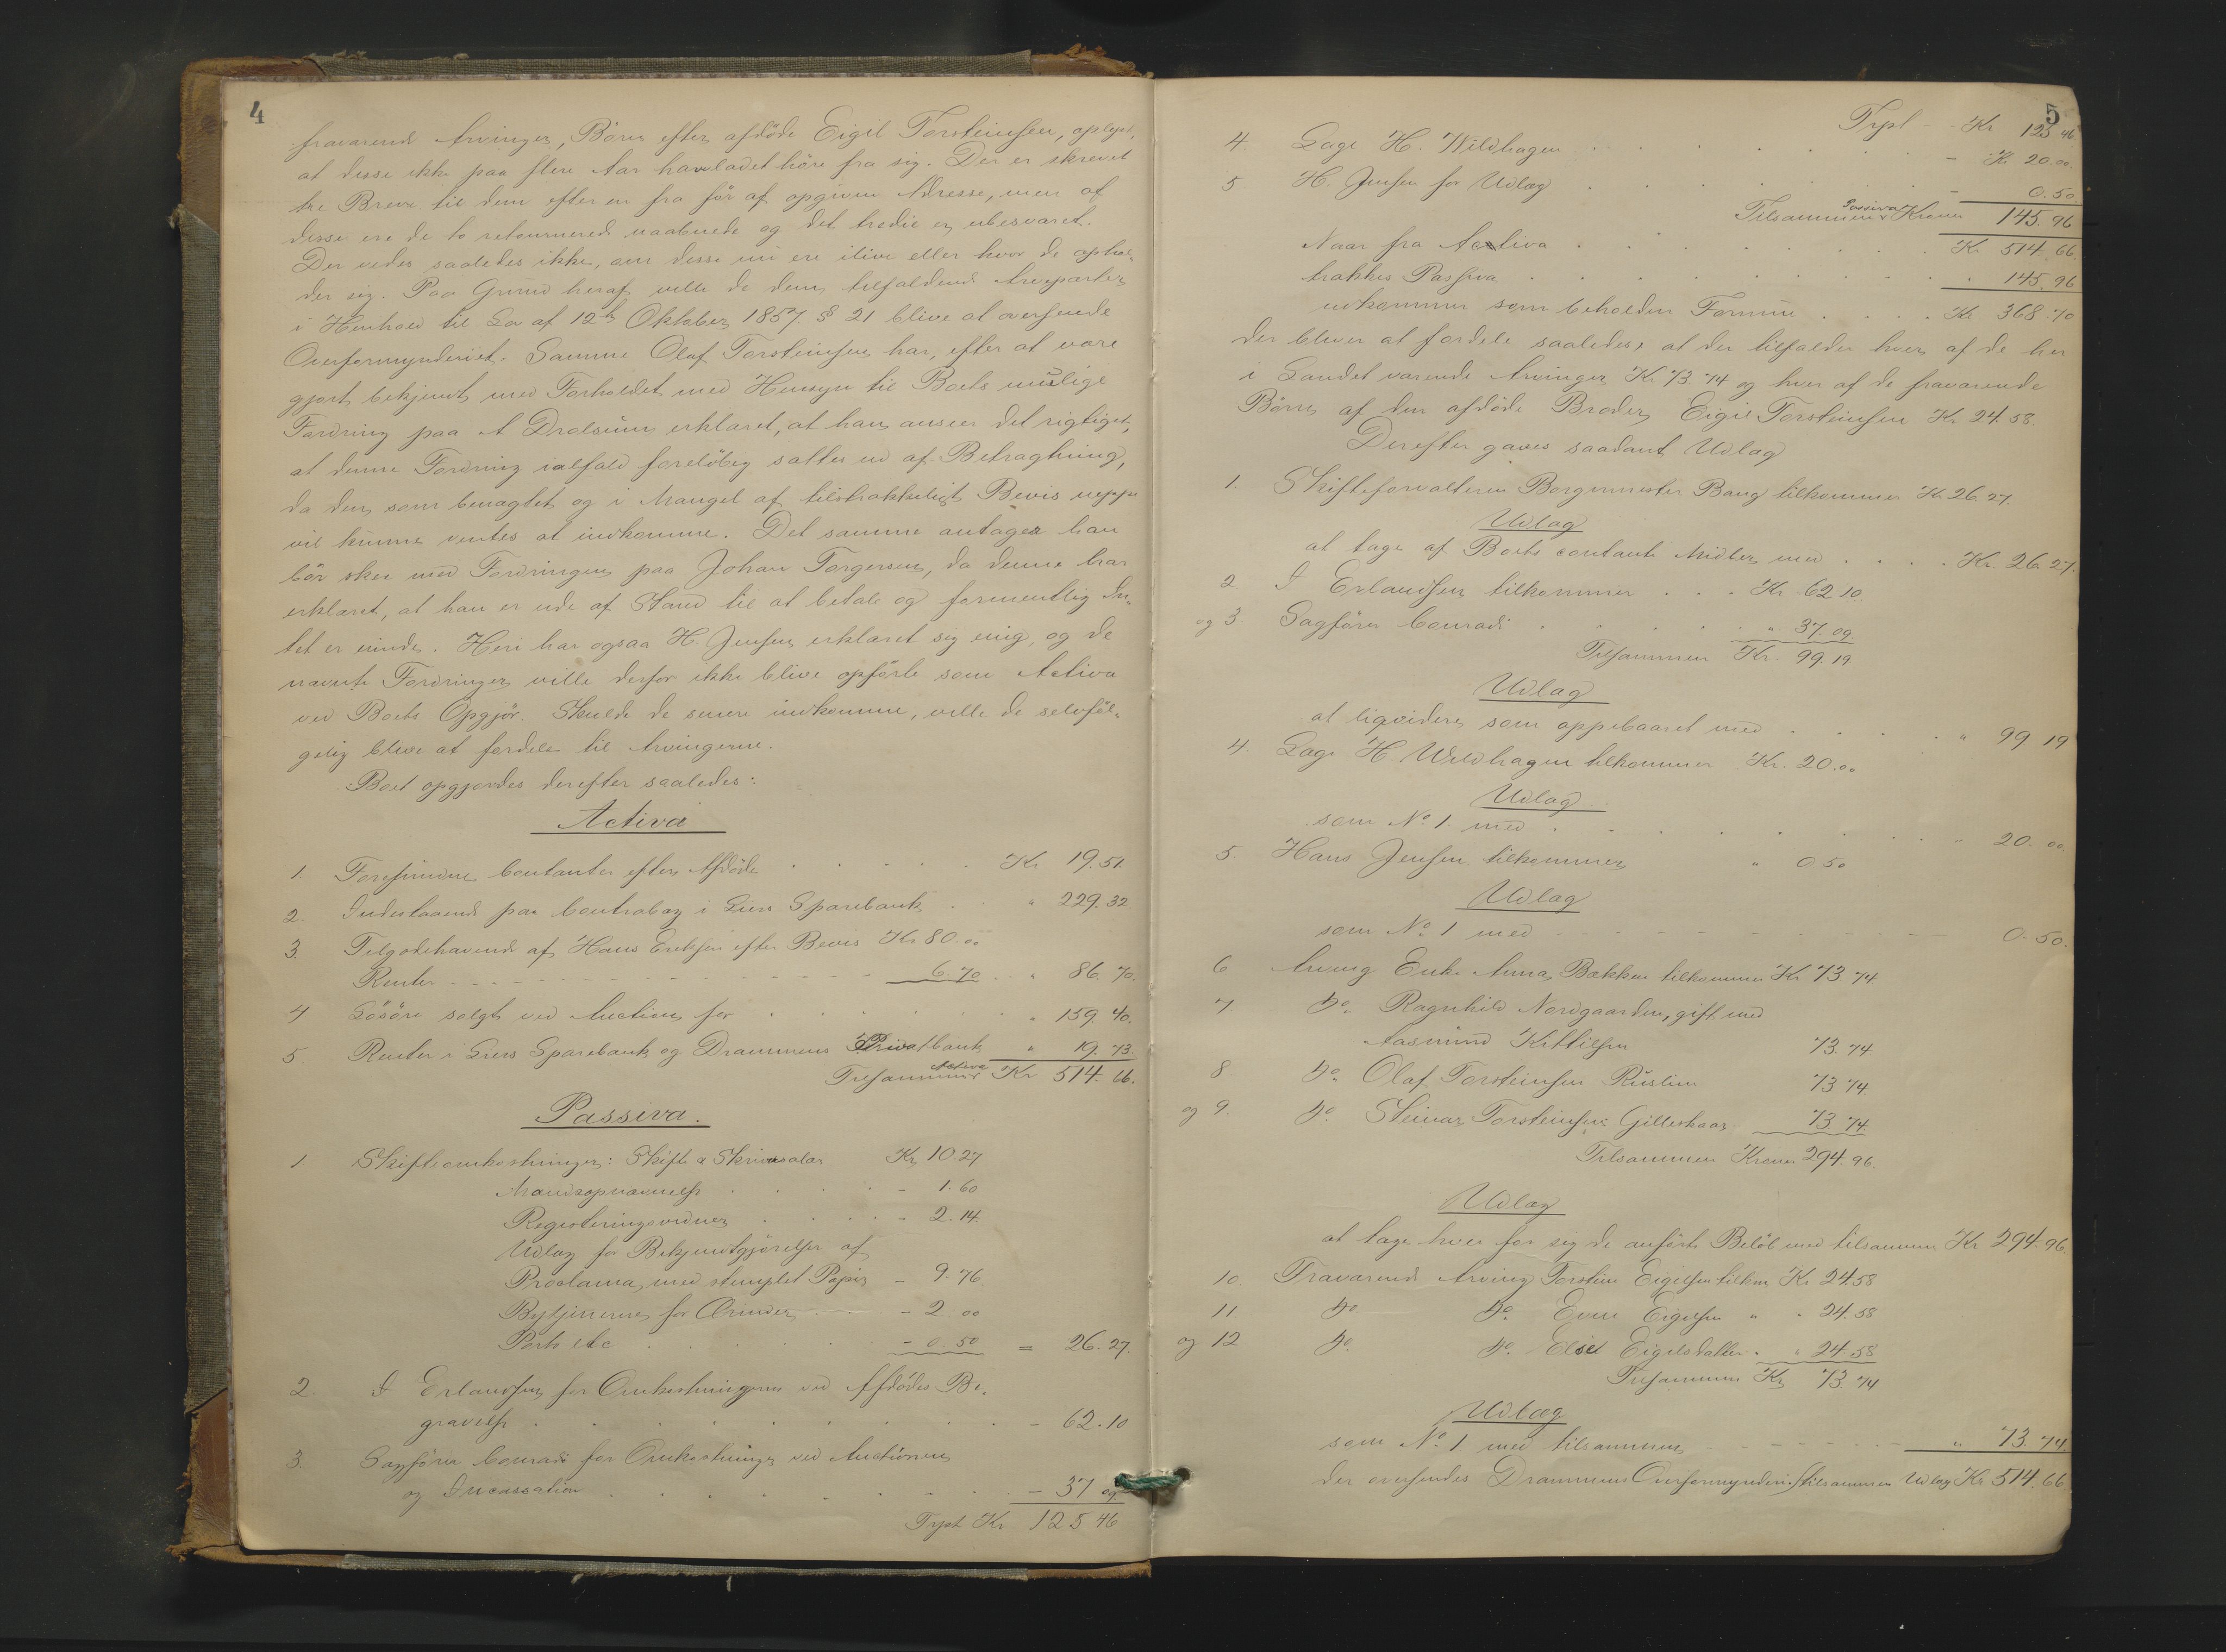 4
fraværende Arvinger, Börn efter afdöde Eigil Torsteinsen, oplyst,
at disse ikke paa flere Aar have ladet höre fra sig. Der er skrevet
tre Breve til dem efter en fra för af opgiven Adresse, men af
disse ere de to retournerede uaabnede og det tredie er ubesvaret.
Der vides saaledes ikke, om disse nu ere ilive eller hvor de ophol-
der sig. Paa Grund heraf ville de dem tilfaldende Arveparter
i Henhold til Lov af 12te Oktober 1857 § 21 blive at oversende
Overformynderiet. Samme Olaf Torsteinsen har, efter at være
gjort bekjendt med Forholdet med Hensyn til Boets mulige
Fordring paa A Dralsum erklæret, at han anseer det rigtigst,
at denne Fordring ialfald foreløbig sættes ud af Betragtning,
da den som benægtet og i Mangel af tilstrækkeligt Bevis neppe
vil kunne ventes at indkomme. Det samme antager han
bör skee med Fordringen paa Johan Torgersen, da denne har
erklæret, at han er ude af Stand til at betale og formentlig In-
tet er eiende. Heri har ogsaa H. Jensen erklæret sig enig, og de
nævnte Fordringer ville derfor ikke blive opförte som Activa
ved Boets Opgjör. Skulde de senere indkomme, ville de selvföl-
gelig blive at fordele til Arvingerne.
Boet opgjordes derefter saaledes:
Activa
1. Forefundne Contanter efter Afdöde Kr 19.51.
2. Indestaaende paa Contrabog i Liers Sparebank " 229.32
3. Tilgodehavende af Hans Eriksen efter Bevis Kr 80.00
Renter 6.70 " 86.70.
4 Lösöre solgt ved Auction for " 159.40.
5. Renter i Liers Sparebank og Drammens Privatbank " 19.73.
Tilsammen Activa Kr 514.66.
Passiva.
1 Skifteomkostninger: Skifte & Skriversalær Kr 10.27
Mandsopnævnelse - 1.60
Registreringsvidner - 2.14.
Udlæg for Bekjendtgjörelse af
Proclama, med stemplet Papir - 9.76
Bytjenerne for Ærinder - 2.00
Porto etc - 0.50 = 26.27.
2. I Erlandsen for Omkostningerne ved Afdödes Be-
gravelse - 62.10
3. Sagförer Conradi for Omkostninger ved Auctionen
og Incassation - 37.09
Trpt Kr 125 46
5
Trpt - Kr 125 46
4. Læge H. Wildhagen - K. 20.00.
5 H. Jensen for Udlæg - 0.50
Tilsammen Passiva Kroner 145.96
Naar fra Activa Kr 514.66.
trækkes Passiva " 145.96
udkommer som beholden Formue Kr 368.70
der bliver at fordele saaledes, at der tilfalder hver af de her
i Landet værende Arvinger Kr 73.74 og hver af de fraværende
Börn af den afdöde Broder Eigil Torsteinsen Kr 24.58.
Derefter gaves saadant Udlæg
1. Skifteforvalteren Borgermester Bang tilkommer Kr 26.27.
Udlæg
at tage af Boets contante Midler med Kr. 26.27.
2 I Erlandsen tilkommer Kr 62 10.
og 3. Sagförer Conradi " 37.09
Tilsammen Kr. 99.19
Udlæg
at liqvidere som oppebaaret med " 99 19
4. Læge H. Wildhagen tilkommer Kr. 20.00
Udlæg
som No 1. med - 20.00.
5. Hans Jensen tilkommer " 0 50
Udlæg
som No 1 med 0-50.
6 Arving Enke Anna Bakken tilkommer Kr 73 74
7. do. Ragnhild Nordgaarden, gift med
Aasmund Kittilsen 73.74
8 do Olaf Torsteinsen Rustin 73 74
og 9. do. Steinar Torsteinsen Gilleshaar 73.74.
Tilsammen Kroner 294.96.
Udlæg
at tage hver for sig de anförte Belöb med tilsammen Kr 294.96.
10. Fraværende Arving Torstein Eigilsen tilkom Kr 24.58
11. do do. Even Eigilsen " " 24.58
og 12 do. do. Elset Eigilsdatter " " 24.58
Tilsammen Kr 73.74
Udlæg
som No 1 med tilsammen " 73.74
der oversendes Drammens Overformynderi. Tilsammen Udlæg Kr 514.66